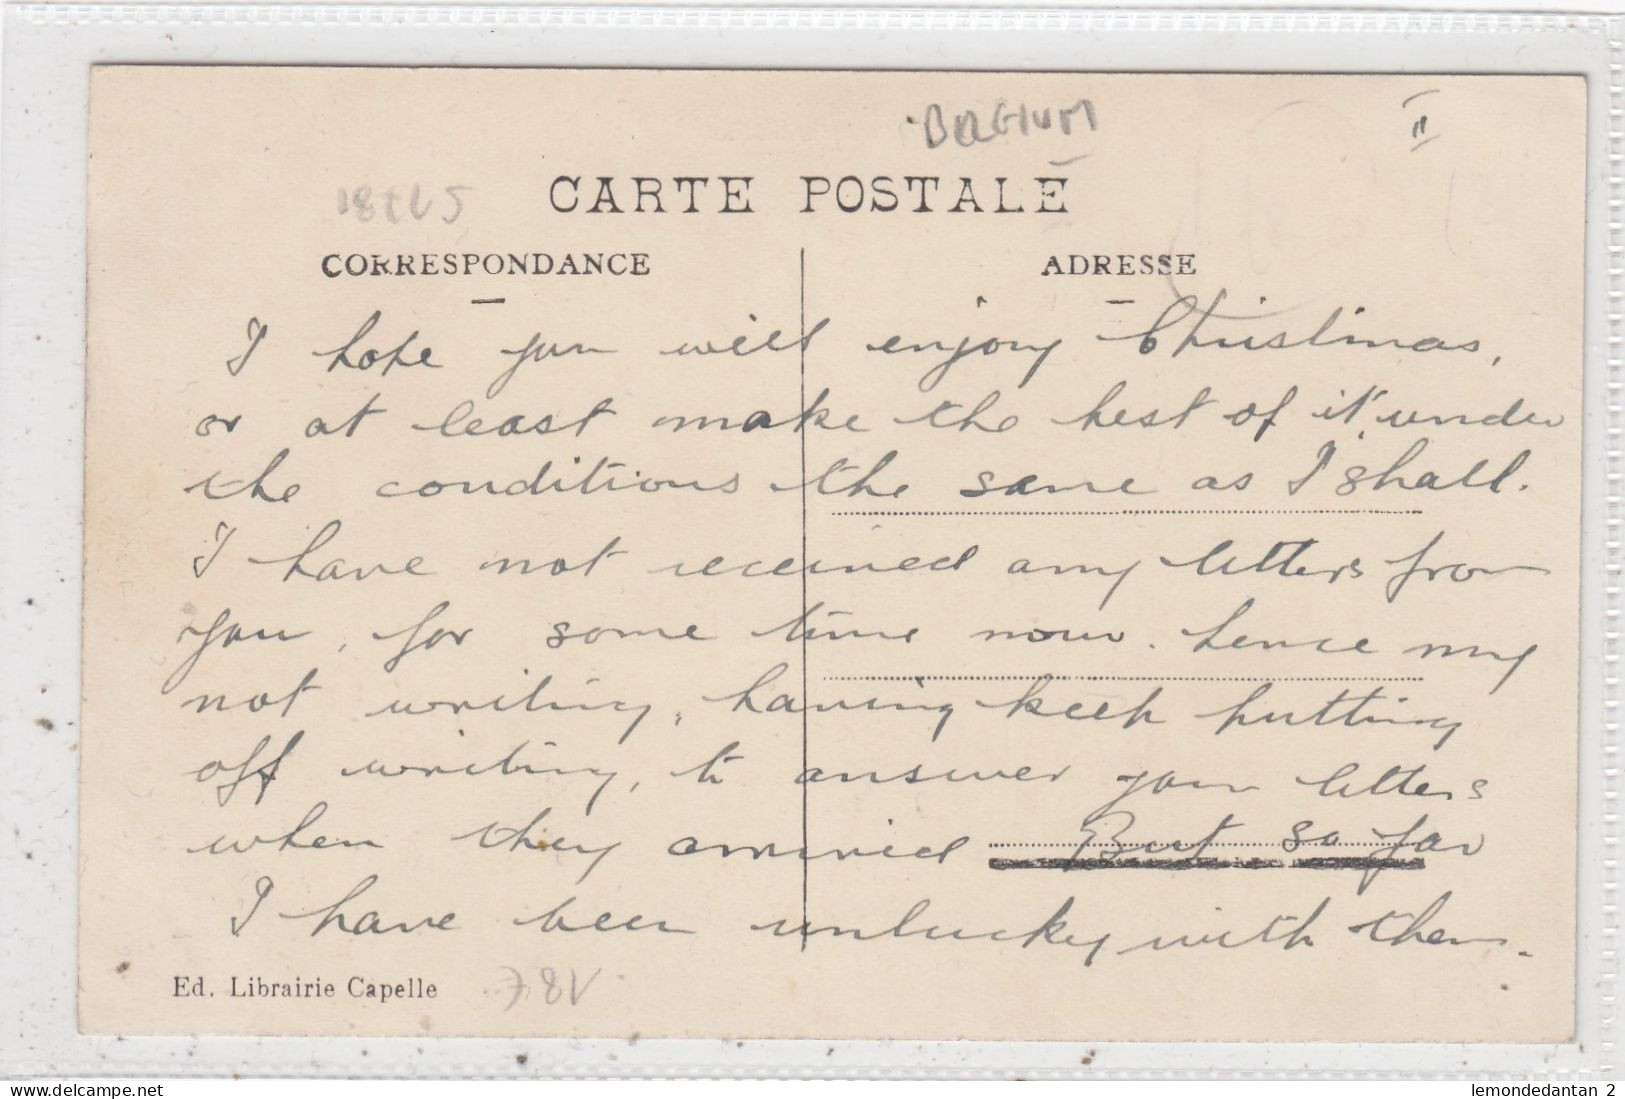 BELGIUM
CARTE POSTALE
CORRESPONDANCE
ADRESSE
I hope you will enjoy Christmas,
or at least make the best of it, under
the conditions the same as I shall.
I have not received any letters from
you, for some time now. hence my
not writing, having keep putting
off writing, to answer your letters
when they arrived But so far
I have been unlucky with them.
Ed. Librairie Capelle
delcampe.net
lemondedantan 2